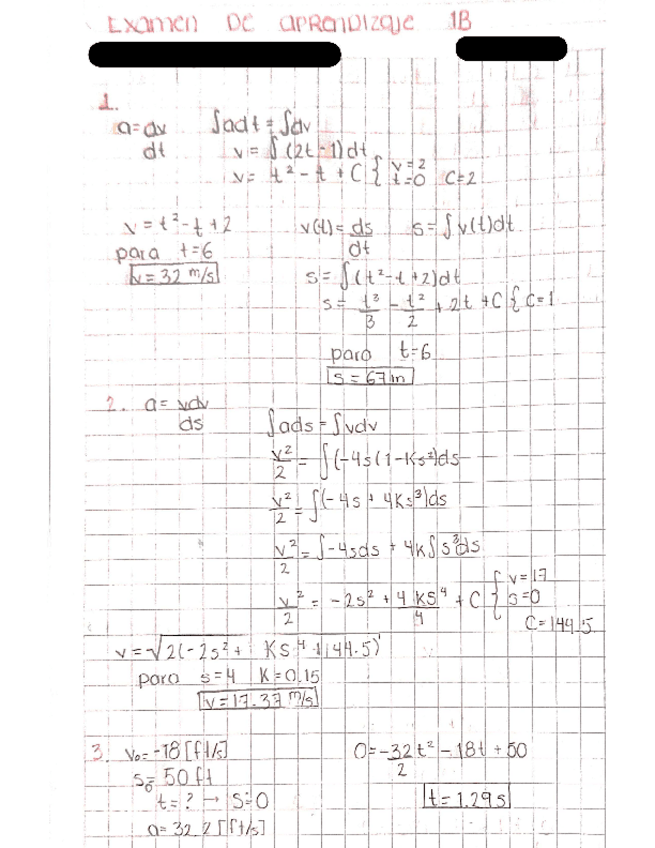 Examen De aprendizaje 1B
1.
a=dv
dt
∫adt = ∫dv
v= ∫(2t-1)dt
v= t²-t+C { v=2 t=0 C=2
v=t²-t+2
para t=6
v=32 m/s
v(t)= ds/dt s=∫v(t)dt
s=∫(t²-t+2)dt
s= t³/3 - t²/2 + 2t +C { C=1
para t=6
s=67m
2. a= vdv
ds
∫ads = ∫vdv
v²/2 = ∫(-4s(1-Ks²)ds
v²/2 = ∫(-4s + 4Ks³)ds
v²/2 = ∫-4sds + 4k∫s³ds
v²/2 = -2s² + 4Ks⁴/4 + C { v=17 s=0
C=144.5
v=√2(-2s²+ Ks⁴+144.5)
para s=4 K=0.15
v=17.37 m/s
3. v₀=-18[ft/s]
s₀=50ft
t=? → s=0
a=32.2[ft/s]
0=-32/2 t² -18t +50
t=1.29s